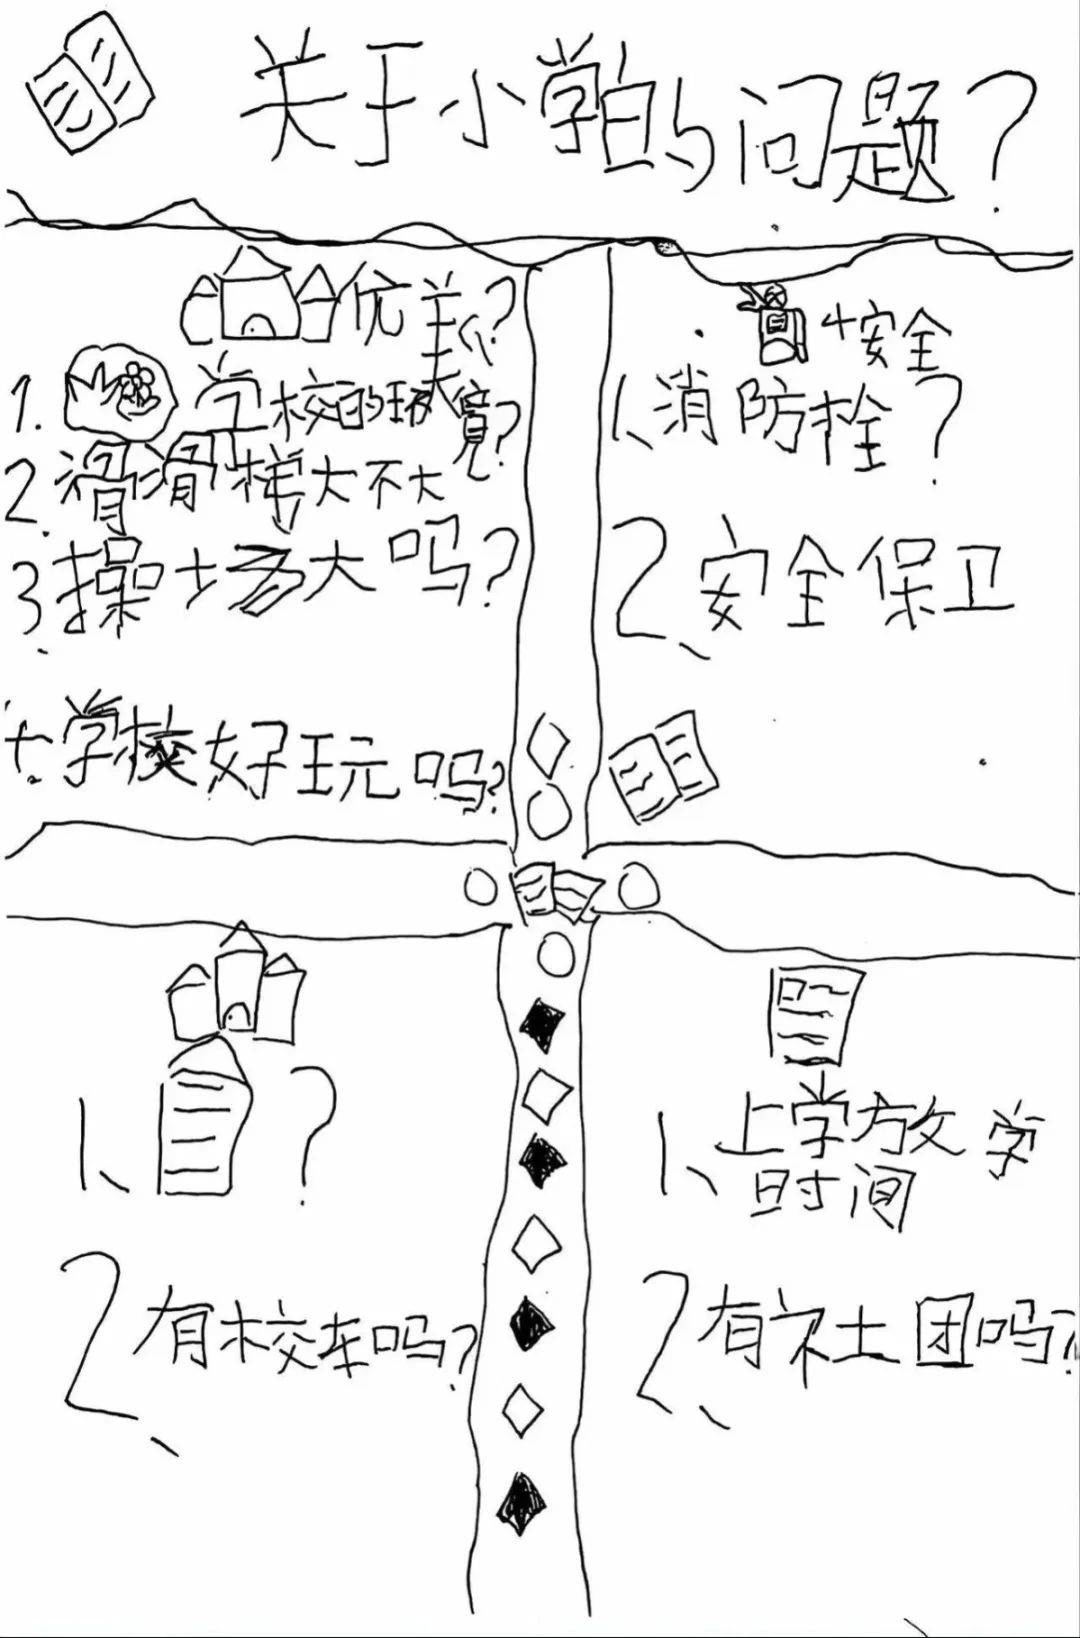 关于小学的问题?
优美?
1. 学校的环境?
2. 滑滑梯大不大
3. 操场大吗?
学校好玩吗?
安全
1、消防栓?
2、安全保卫
1、?
2、有校车吗?
1、上学放学
时间
2、有社团吗?